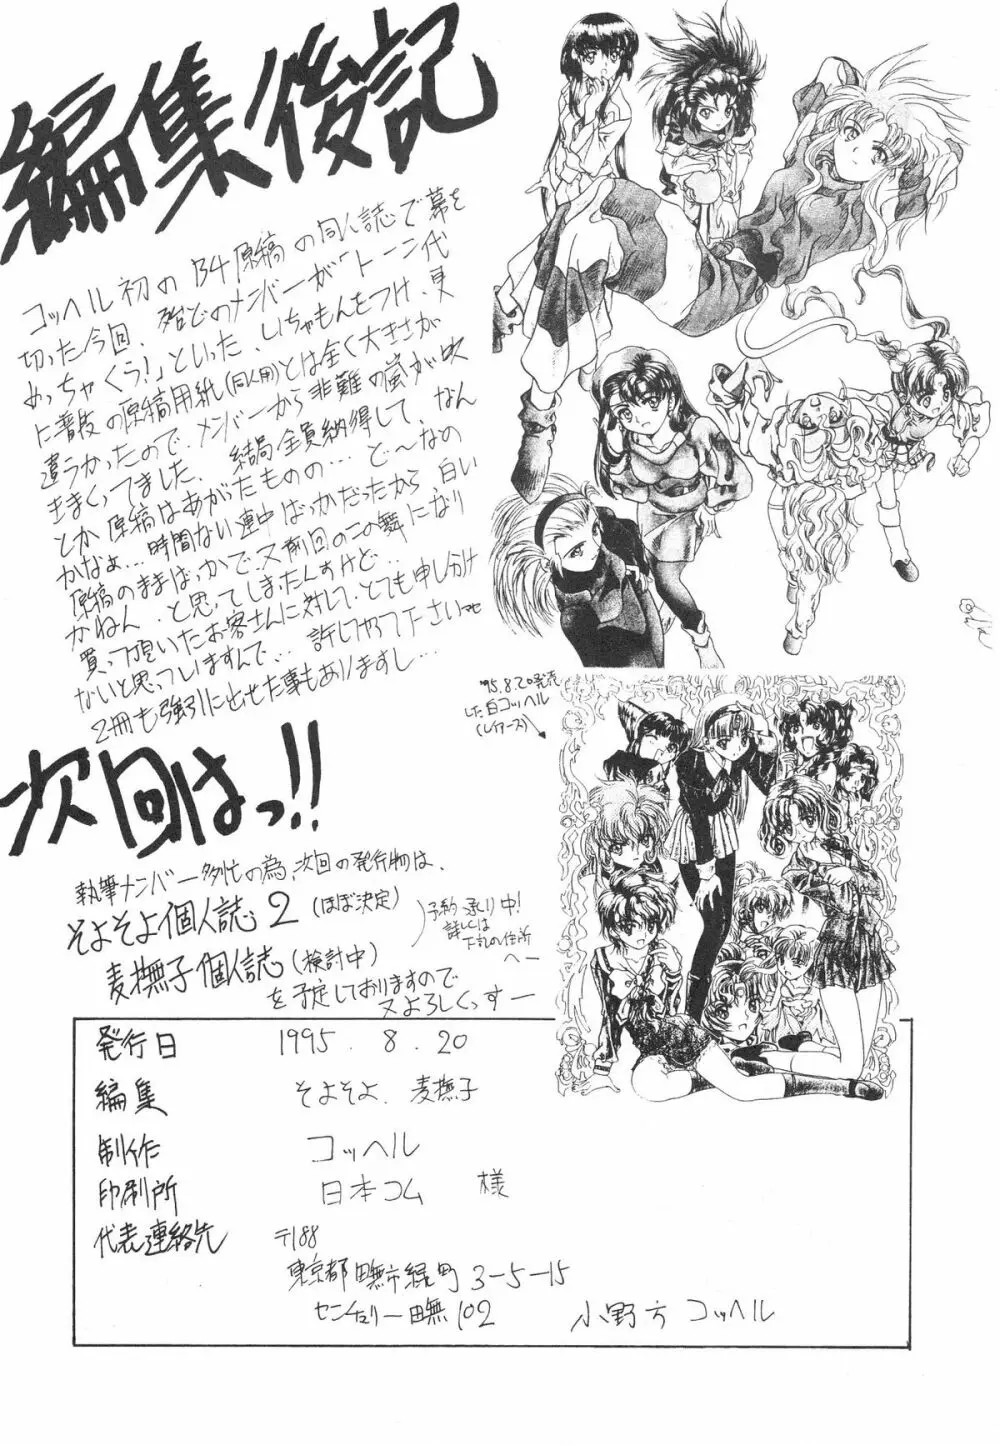 編集後記
コッヘル初のB4原稿の同人誌で幕を
切った今回、殆どのメンバーが「トーン代
めっちゃくう!」といった、いちゃもんをつけ、更
に普段の原稿用紙(同人用)とは全く大きさが
違うかったので、メンバーから非難の嵐が吹
きまくってました、結局全員納得して、なん
とか原稿はあがったものの…ど〜なの
かなぁ…時間ない連中ばっかだったから白い
原稿のままばっかで、又前回の二の舞になり
かねん、と思ってしまったんすけど…
買って頂いたお客さんに対して、とても申し分け
ないと思ってしますんで…許してやって下さいませ
2冊も強引に出せた事もありますし…
'95.8.20発売
した白コッヘル
(レイアース)
次回はっ!!
執筆メンバー多忙の為、次回の発行物は、
そよそよ個人誌2(ほぼ決定)
麦撫子個人誌(検討中)
予約承り中!
詳しくは
下記の住所
へー
を予定しておりますので
又よろしくっすー
発行日 1995.8.20
編集 そよそよ、麦撫子
制作 コッヘル
印刷所 日本コム 様
代表連絡先 〒188
東京都田無市緑町3-5-15
センチュリー田無102 小野方 コッヘル